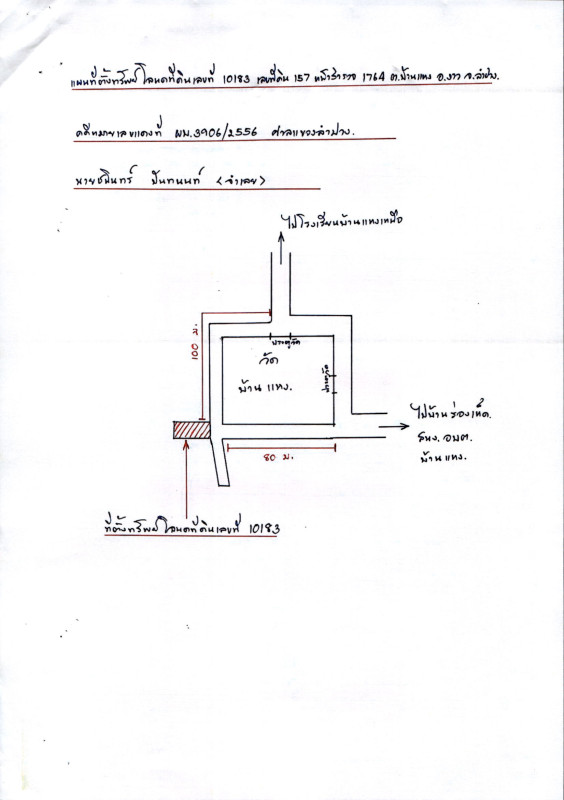 แผนที่ตั้งทรัพย์ โฉนดที่ดินเลขที่ 10183 เลขที่ดิน 157 หน้าสำรวจ 1764 ต.บ้านแหง อ.งาว จ.ลำปาง.
คดีหมายเลขแดงที่ ผบ.3906/2556 ศาลแขวงลำปาง.
นายชรินทร์ ปันทนนท์ (จำเลย)
ไปโรงเรียนบ้านแหงเหนือ
100 ม.
ประตูวัด
วัด
บ้านแหง.
ประตูวัด
ไปบ้านร่องเห็ด.
สนง. อบต.
บ้านแหง.
80 ม.
ที่ตั้งทรัพย์ โฉนดที่ดินเลขที่ 10183